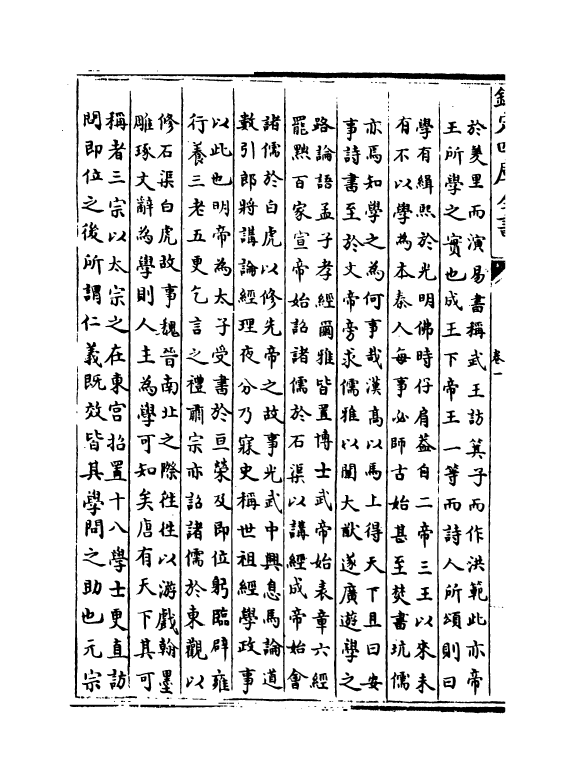 欽定四庫全書
卷一
於羑里而演易書稱武王訪箕子而作洪範此亦帝
王所學之實也成王下帝王一等而詩人所頌則曰
學有緝熙於光明佛時仔肩蓋自二帝三王以來未
有不以學為本秦人每事必師古始甚至焚書坑儒
亦焉知學之為何事哉漢高以馬上得天下且曰安
事詩書至於文帝旁求儒雅以闡大猷遂廣遊學之
路論語孟子孝經爾雅皆置博士武帝始表章六經
罷黜百家宣帝始詔諸儒於石渠以講經成帝始會
諸儒於白虎以修先帝之故事光武中興息馬論道
數引郎將講論經理夜分乃寐史稱世祖經學政事
以此也明帝為太子受書於桓榮及即位躬臨辟雍
行養三老五更乞言之禮肅宗亦詔諸儒於東觀以
修石渠白虎故事魏晉南北之際徃徃以游戲翰墨
雕琢文辭為學則人主為學可知矣唐有天下其可
稱者三宗以太宗之在東宮招置十八學士更直訪
問即位之後所謂仁義既效皆其學問之助也元宗